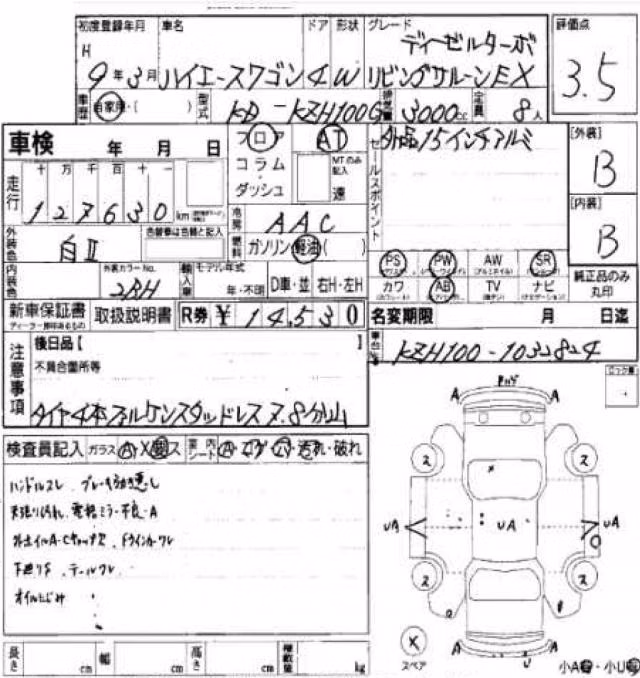 初度登録年月 車名 ドア 形状 グレード 評価点
H ディーゼルターボ
9年3月 ハイエースワゴン 4 W リビングサルーンEX 3.5
車歴 自家用・( ) 型式 KD-KZH100G 排気量 3000cc 定員 8人
車検 年 月 日 フロア AT 外品15インチアルミ [外装]
コラム MTのみ記入 B
ダッシュ 速 セールスポイント
走行 十 万 千 百 十 一
127630 km [内装]
冷房 AAC B
外装色 白II 色替車は色替と記入 燃料 ガソリン・軽油( )
PS PW AW SR
カワ AB TV ナビ 純正品のみ丸印
内装色 外装カラーNo. 2RH 輸入車 モデル年式 年・不明 D車・並 右H・左H
新車保証書 取扱説明書 R券 ¥ 14,530 名変期限 月 日迄
注意事項 後日品【 】 車台No. KZH100-1032824
不具合箇所等
タイヤ4本ファルケンスタッドレス 7.8分山
検査員記入 ガラス A・X・ 室内シート A・コゲ・ ・汚れ・破れ
ハンドルスレ
天張り汚れ 電格ミラー不良・A
下廻りサ テールワレ
オイルにじみ
A A
2 2
UA UA UA
2 2
A A
U
X
スペア
長さ cm 幅 cm 高さ cm 積載量 kg
小A ・小U